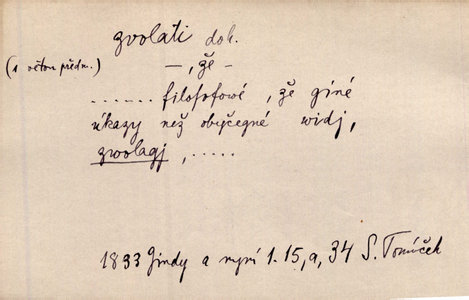 zvolati dok.
(s větou předm.) –, že –
...... filosofowé, že giné
úkazy než obyčegné widj,
zwolagj, .....
1833 Gindy a nyní 1. 15, a, 34 S. Tomíček